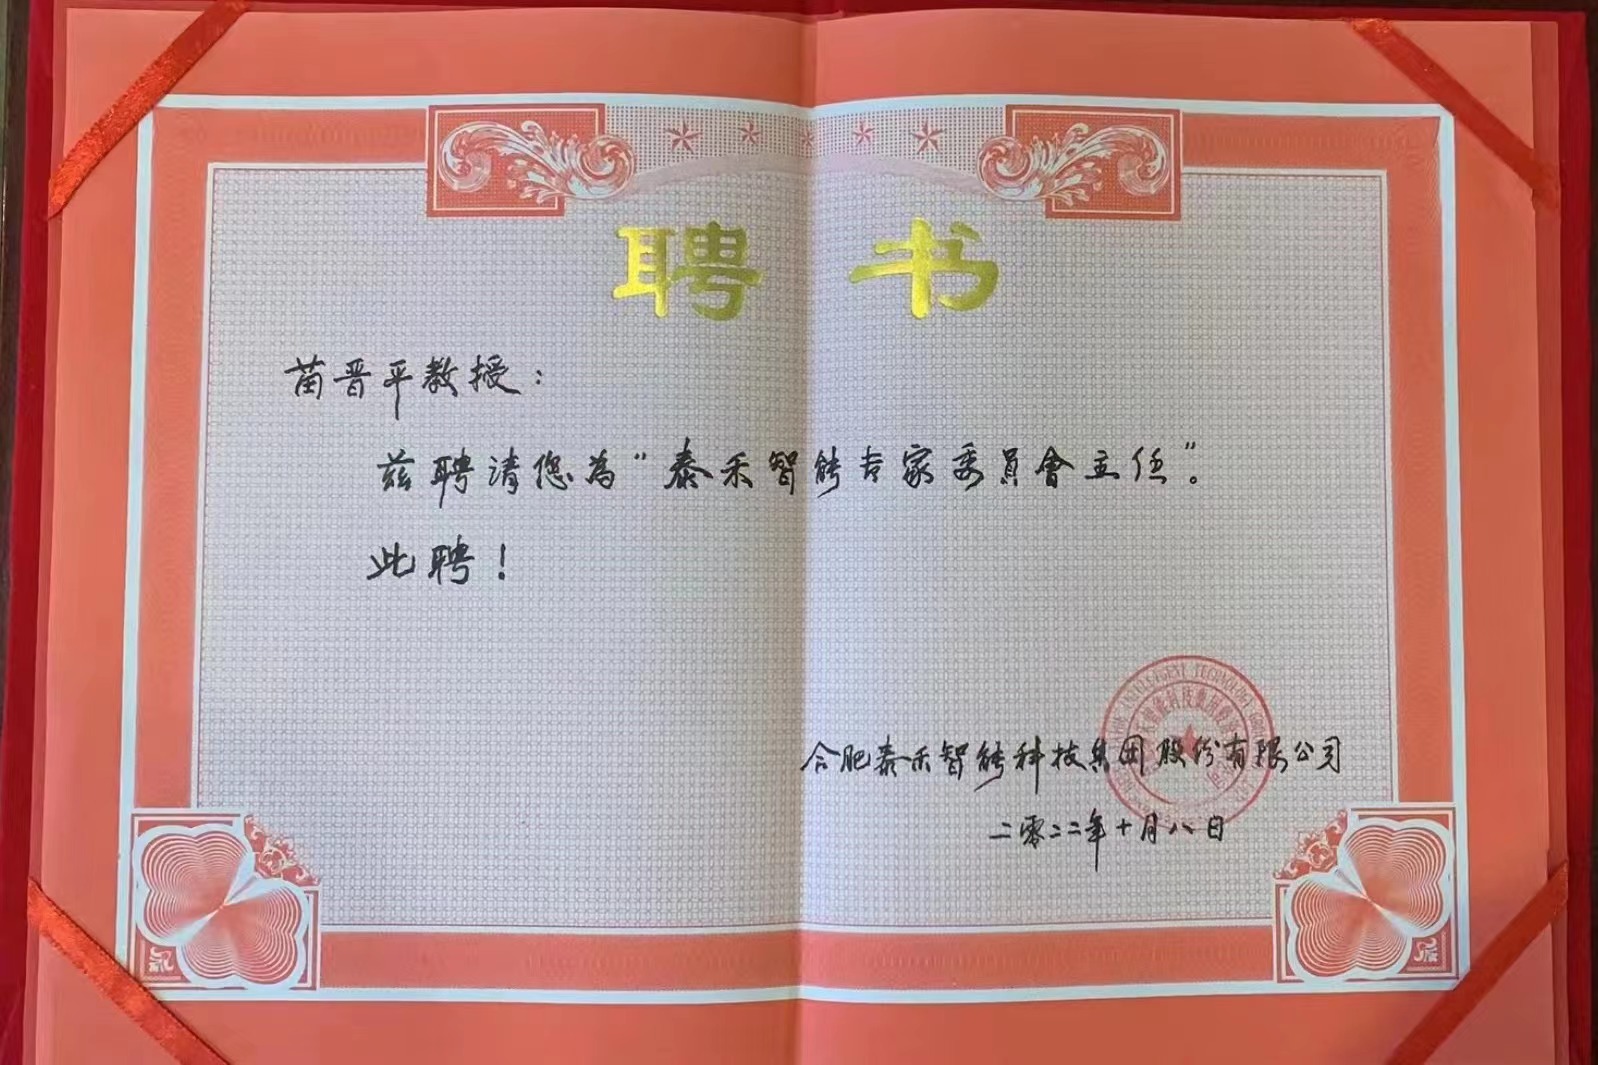 聘书
苗晋平教授：
兹聘请您为“泰禾智能专家委員會主任”。
此聘！
合肥泰禾智能科技集团股份有限公司
二零二二年十月八日
INTELLIGENT TECHNOLOGY